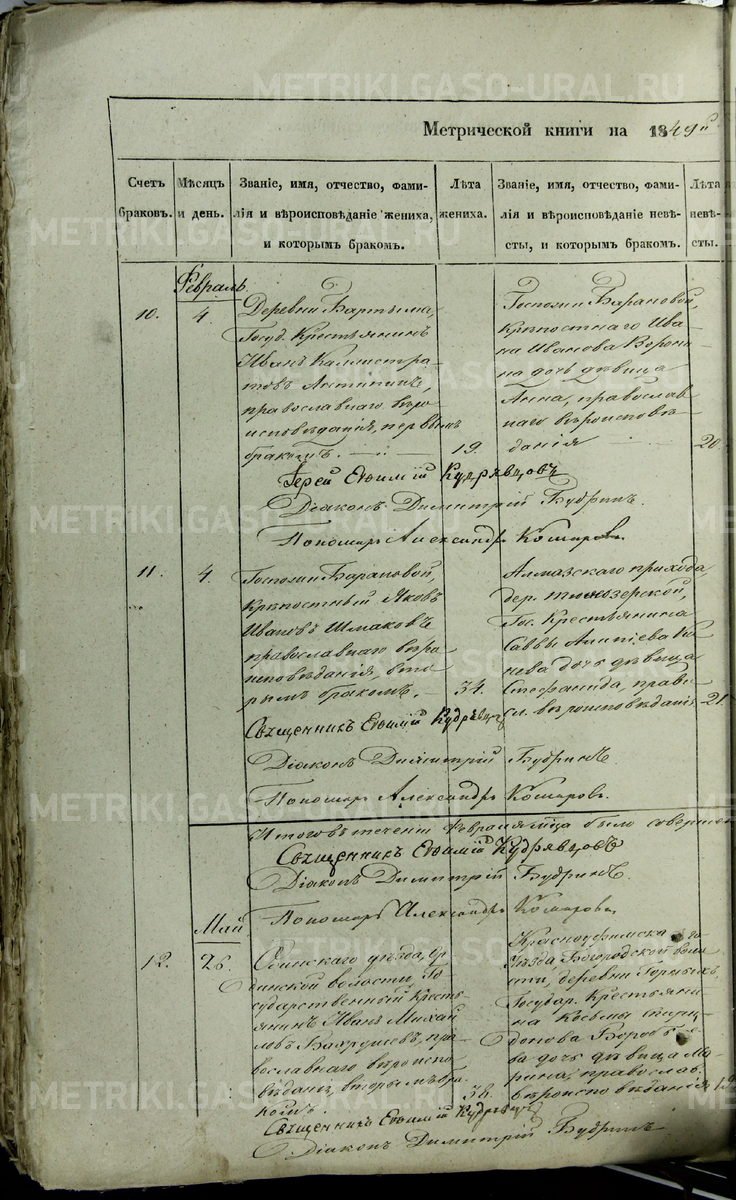 Метрической книги на 1849й
Счетъ браковъ.
Мѣсяцъ и день.
Званіе, имя, отчество, фами-
лія и вѣроисповѣданіе жениха,
и которымъ бракомъ.
Лѣта жениха.
Званіе, имя, отчество, фами-
лія и вѣроисповѣданіе невѣ-
сты, и которымъ бракомъ.
Лѣта невѣ-
сты.
Февраль.
10.
4.
Деревни Бартыма,
Госуд. Крестьянинъ
Иванъ Каллистра-
товъ Антипинъ,
православнаго вѣро
исповѣданія, первымъ
бракомъ.
19.
Госпожи Барановой,
крѣпостнаго Ива-
на Иванова Ворони-
на дочь дѣвица
Анна, православ
наго вѣроисповѣ-
данія
20
Іерей Евѳимій Кудрявцовъ
Діаконъ Димитрій Будринъ.
Пономарь Александръ Комаровъ.
11.
4.
Госпожи Барановой,
Крѣпостный Яковъ
Ивановъ Шмаковъ
православнаго вѣро
исповѣданія, вто
рымъ бракомъ.
34.
Алмазскаго прихода,
дер.
Гос. Крестьянина
Саввы
дочь дѣвица
Стефанида, право
сл. вѣроисповѣданія
21.
Священникъ Евѳимій Кудрявцовъ
Діаконъ Димитрій Будринъ.
Пономарь Александръ Комаровъ.
Итого въ теченіи Февраля м҃ца было совершен
Священникъ Евѳимій Кудрявцовъ
Діаконъ Димитрій Будринъ.
Пономарь Александръ Комаровъ
Май
12.
26.
Осинскаго уѣзда, Ор
динской волости, Го
сударственный Кресть
янинъ Иванъ Михай
ловъ пра
вославнаго вѣроиспо
вѣданія, вторымъ бра
комъ.
38.
Красноуфимска го
Уѣзда, Богородской воло
сти, деревни
Государ. Крестьяни
на Козьмы Спири
донова Воробье
ва дочь дѣвица Ма
рина, православ.
вѣроисповѣданія,
Священникъ Евѳимій Кудрявцовъ
Діаконъ Димитрій Будринъ
METRIKI.GASO-URAL.RU